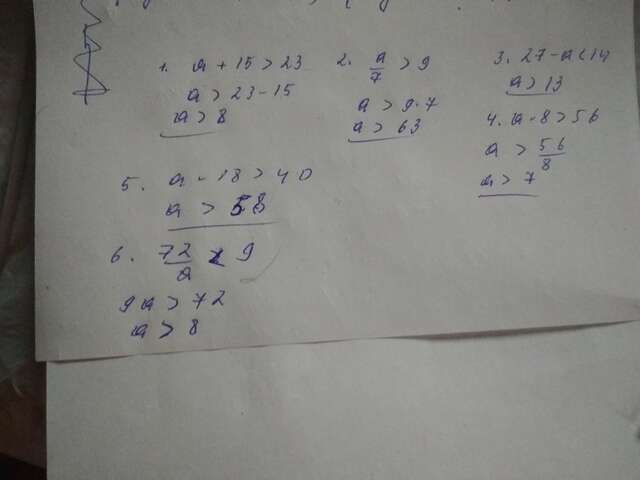 1. a + 15 > 23
a > 23 - 15
a > 8
2. a/7 > 9
a > 9 · 7
a > 63
3. 27 - a < 14
a > 13
4. a · 8 > 56
a > 56/8
a > 7
5. a - 18 > 40
a > 58
6. 72/a < 9
9a > 72
a > 8